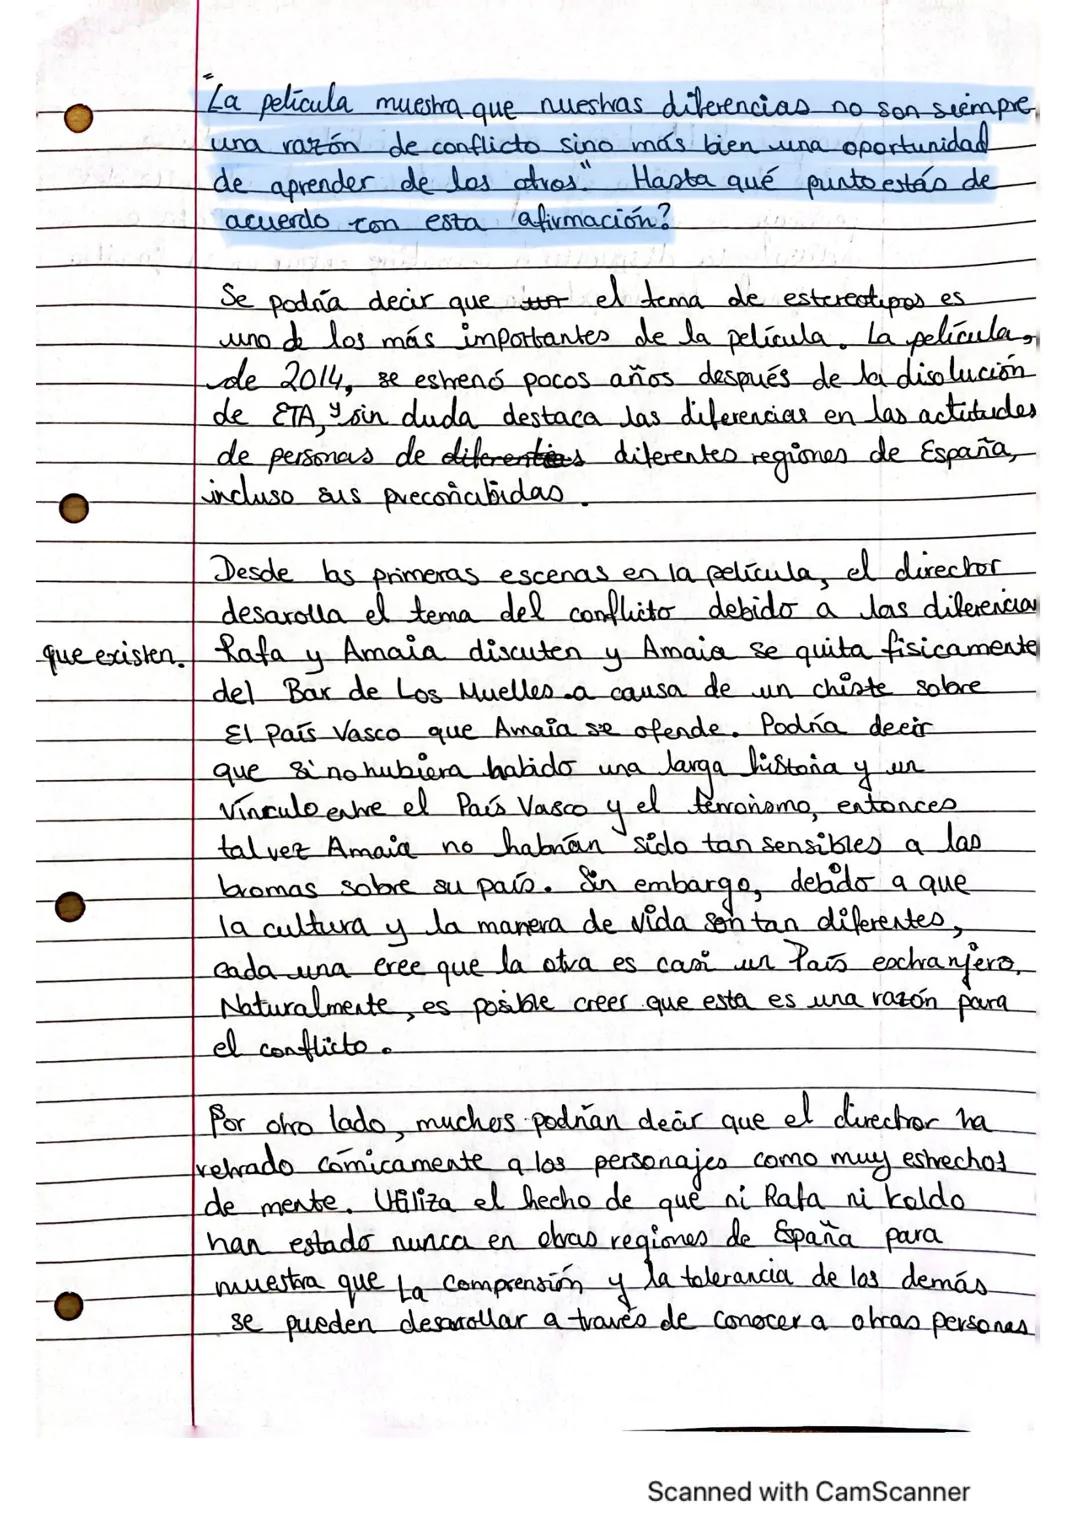 "La película muestra que nuestras diferencias no son siempre
una razón de conflicto sino más bien una oportunidad
de aprender de los otros." Hasta qué punto estás de
acuerdo con esta afirmación?
Se podría decir que el tema de estereotipos es
uno de los más importantes de la película. La película,
de 2014, se estrenó pocos años después de la disolución
de ETA, y sin duda destaca las diferencias en las actitudes
de personas de diferentias diferentes regiones de España,
incluso sus preconcibidas.
Desde las primeras escenas en la película, el director
desarolla el tema del conflicto debido a las diferencias
que existen. Rafa y Amaia discuten y Amaia se quita fisicamente
del Bar de Los Muelles a causa de un chiste sobre
El País Vasco que Amaia se ofende. Podría decir
que si no hubiera habido una larga historia y un
vínculo entre el País Vasco y el terrorismo, entonces
tal vez Amaia no habrían sido tan sensibles a las
bromas sobre su país. Sin embargo, debido a que
la cultura y la manera de vida son tan diferentes,
cada una cree que la otra es casi un País exchranjero.
Naturalmente, es posible creer que esta es una razón para
el conflicto.
Por otro lado, muchos podrían decir que el director ha
retrado cómicamente a los personajes como muy estrechos
de mente. Utiliza el hecho de que ni Rafa ni Koldo
han estado nunca en otras regiones de España para
muestra que la comprensión y la tolerancia de los demás
se pueden desarrollar a través de conocer a otras personas
Scanned with CamScanner